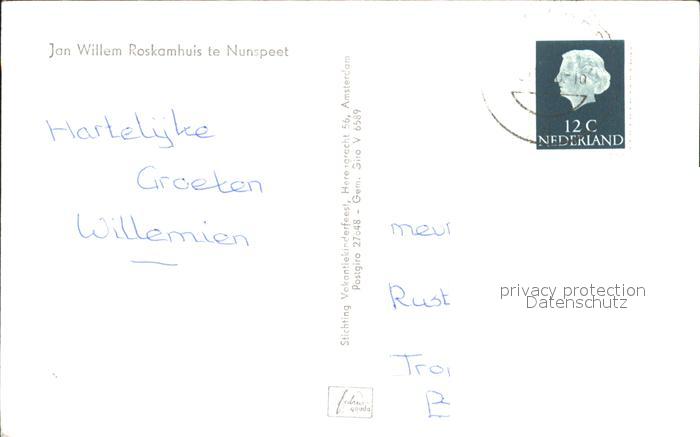 Jan Willem Roskamhuis te Nunspeet
Hartelijke
Groeten
Willemien
Stichting Vakantiekinderfeest, Herengracht 56, Amsterdam
Postgiro 27648 - Gem. Giro V 6589
12 C
NEDERLAND
mevr
Rust
Tro
privacy protection
Datenschutz
gouda